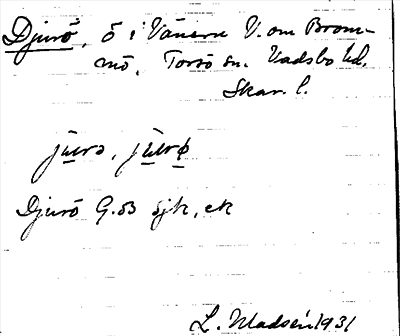 Djurö, ö i Vänern V. om Brom-
mö, Torsö sn. Vadsbo hd.
Skar. l.
jʉrə, jʉrø
Djurö G.bl. sjk, ek
L. Madsén 1931